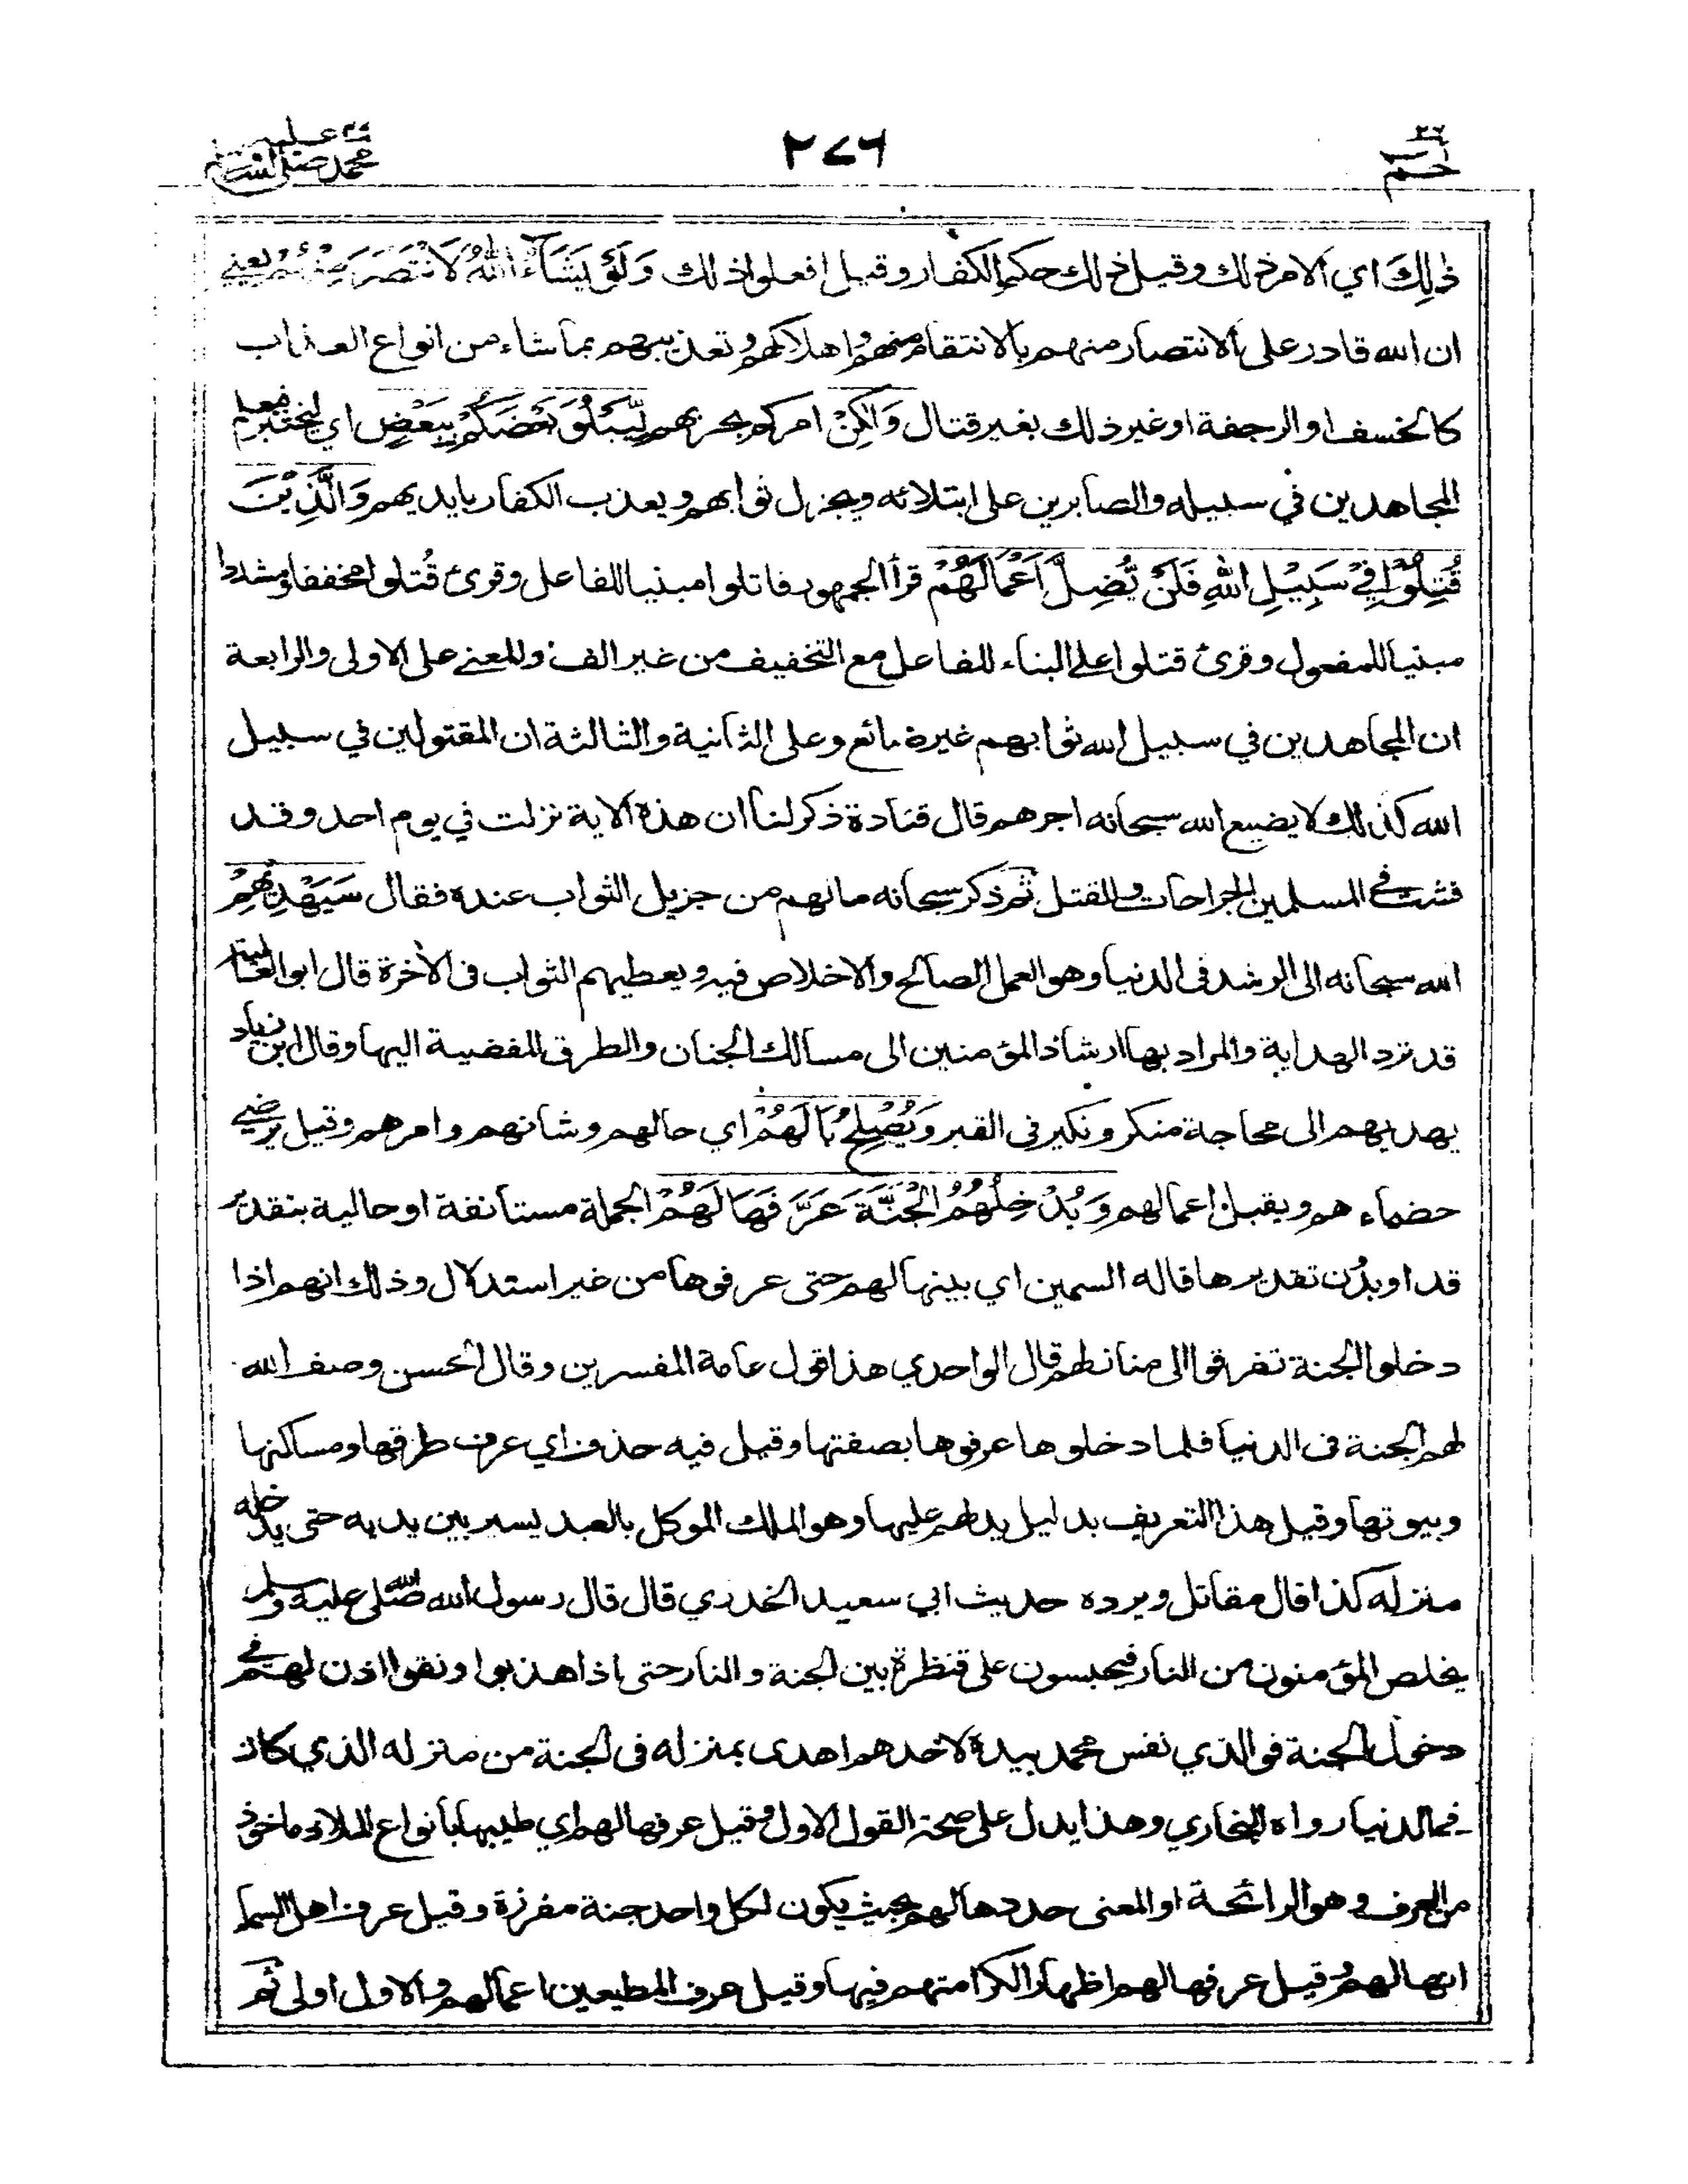 ٢٦ حم
٢٧٦
محمد صلى الله عليه وسلم
ذٰلِكَ اي الامر ذلك وقيل ذلك حكم الكفار وقيل افعلوا ذلك وَلَوْ يَشَآءُ اللّٰهُ لَانْتَصَرَ مِنْهُمْ يعني
ان الله قادر على الانتصار منهم بالانتقام منهم واهلاكهم وتعذيبهم بما شاء من انواع العذاب
كالخسف او الرجفة او غير ذلك بغير قتال وَلٰكِنْ امركم بحربهم لِّيَبْلُوَ بَعْضَكُمْ بِبَعْضٍ اي ليختبر بعضكم
المجاهدين في سبيله والصابرين على ابتلائه ويجزل ثوابهم ويعذب الكفار بايديهم وَالَّذِيْنَ
قُتِلُوْا فِيْ سَبِيْلِ اللّٰهِ فَلَنْ يُّضِلَّ اَعْمَالَهُمْ قرأ الجمهور قاتلوا مبنيا للفاعل وقرئ قُتلوا مخففا ومشددا
مبنيا للمفعول وقرئ قتلوا على البناء للفاعل مع التخفيف من غير الف والمعنى على الاولى والرابعة
ان المجاهدين في سبيل الله ثوابهم غير ضائع وعلى الثانية والثالثة ان المقتولين في سبيل
الله كذلك لا يضيع الله سبحانه اجرهم قال قتادة ذكر لنا ان هذه الاية نزلت في يوم احد وقد
فشت في المسلمين الجراحات والقتل ثم ذكر سبحانه ما لهم من جزيل الثواب عنده فقال سَيَهْدِيْهِمْ
الله سبحانه الى الرشد فى الدنيا وهو العمل الصالح والاخلاص فيه ويعطيهم الثواب فى الأخرة قال ابو العالية
قد ترد الهداية والمراد بها ارشاد المؤمنين الى مسالك الجنان والطرق المفضية اليها وقال ابن زياد
يهديهم الى محاجة منكر ونكير فى القبر وَيُصْلِحُ بَالَهُمْ اي حالهم وشانهم وامرهم وقيل يرضي
خصماءهم ويقبل اعمالهم وَيُدْخِلُهُمُ الْجَنَّةَ عَرَّفَهَا لَهُمْ الجملة مستأنفة او حالية بتقدير
قد او بدون تقديرها قاله السمين اي بينها لهم حتى عرفوها من غير استدلال وذلك انهم اذا
دخلوا الجنة تفرقوا الى منازلهم قال الواحدي هذا قول عامة المفسرين وقال الحسن وصف الله
لهم الجنة فى الدنيا فلما دخلوها عرفوها بصفتها وقيل فيه حذف اي عرف طرقها ومساكنها
وبيوتها وقيل هذا التعريف بدليل يدلهم عليها وهو الملك الموكل بالعبد يسير بين يديه حتى يدخله
منزله كذا قال مقاتل ويرده حديث ابي سعيد الخدري قال قال رسول الله صلى الله عليه وسلم
يخلص المؤمنون من النار فيحبسون على قنطرة بين الجنة والنار حتى اذا هذبوا ونقوا اذن لهم في
دخول الجنة فوالذي نفس محمد بيده لاحدهم اهدى بمنزله فى الجنة من منزله الذي كان
في الدنيا رواه البخاري وهذا يدل على صحة القول الاول وقيل عرفها لهم اي طيبها بأنواع الملاذ ماخوذ
من العرف وهو الرائحة او المعنى حددها لهم بحيث يكون لكل واحد جنة مفرزة وقيل عرف اهل السماء
انها لهم وقيل عرفها لهم اظهارا لكرامتهم فيها وقيل عرف المطيعين اعمالهم والاول اولى ثم